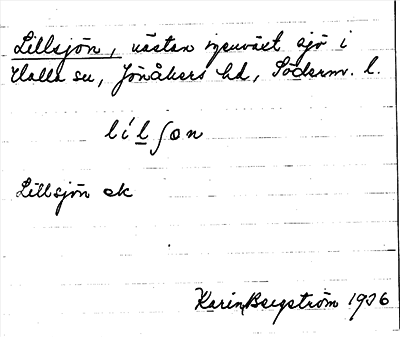 Lillsjön, nästan igenväxt sjö i
Halla sn, Jönåkers hd, Söderm. l.
lílʃon
Lillsjön ek
Karin Bergström 1936